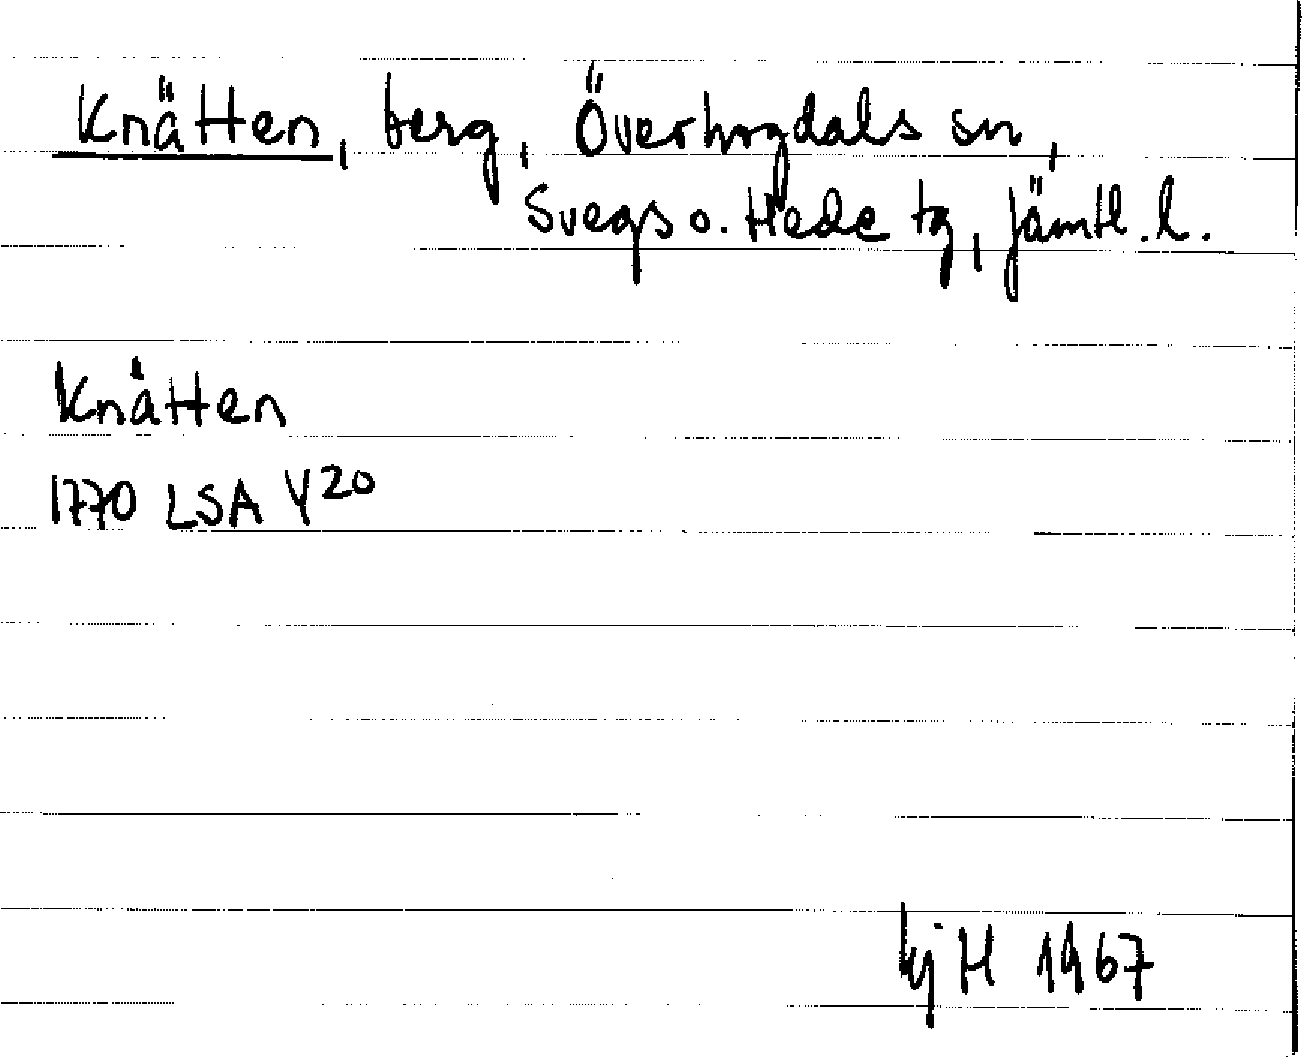 Knätten, berg, Överhogdals sn,
Svegs o. Hede tg, Jämtl. l.
Knätten
1770 LSA Y20
kj H 1967